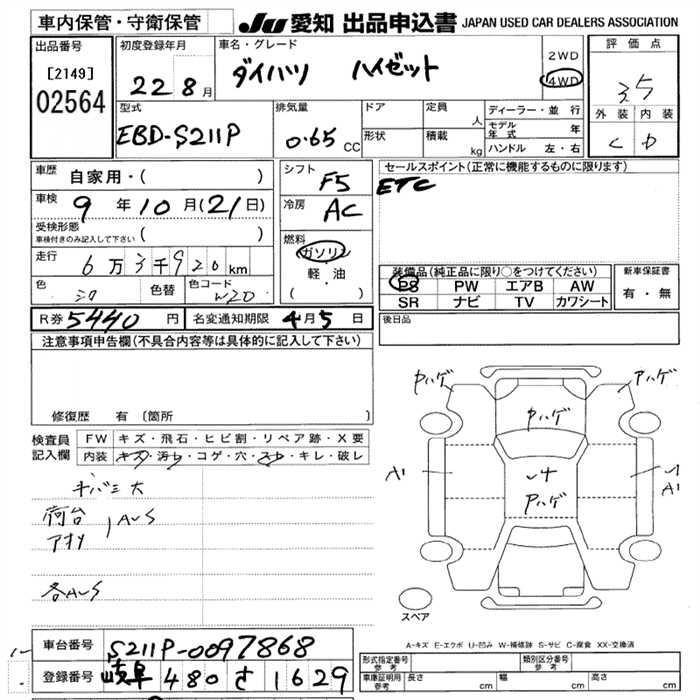 車内保管・守衛保管
JU 愛知 出品申込書 JAPAN USED CAR DEALERS ASSOCIATION
出品番号
[2149]
02564
初度登録年月
22 8月
車名・グレード
ダイハツ ハイゼット
2WD
4WD
評価点
3.5
外装 内装
C D
型式
EBD-S211P
排気量
0.65 CC
ドア
形状
定員 人
積載 kg
ディーラー・並行
モデル年式 年
ハンドル 左・右
車歴
自家用・( )
車検
9年10月(21日)
受検形態
車検付きのみ記入して下さい ( )
走行
6万3千920km
色
シロ
色替
色コード
W20
シフト
F5
冷房
AC
燃料
ガソリン
軽・油
( ・ )
セールスポイント(正常に機能するものに限ります)
ETC
装備品(純正品に限り○をつけてください)
PS PW エアB AW
SR ナビ TV カワシート
新車保証書
有・無
R券 5440円
名変通知期限 4月5日
後日品
注意事項申告欄(不具合内容等は具体的に記入して下さい)
修復歴 有 〔箇所 〕
検査員記入欄
FW キズ・飛石・ヒビ割・リペア跡・X要
内装 キズ・汚レ・コゲ・穴・スレ・キレ・破レ
チバミ大
荷台
アオリ
AUS
各AUS
Pハゲ
Pハゲ
Aハゲ
Pハゲ
A1
A1
スペア
A-キズ E-エクボ U-凹み W-補修跡 S-サビ C-腐食 XX-交換済
車台番号
S211P-0097868
登録番号
岐阜 480 さ 1629
形式指定番号
参考
類別区分番号
参考
車庫証明用
参考
長さ cm
幅 cm
高さ cm